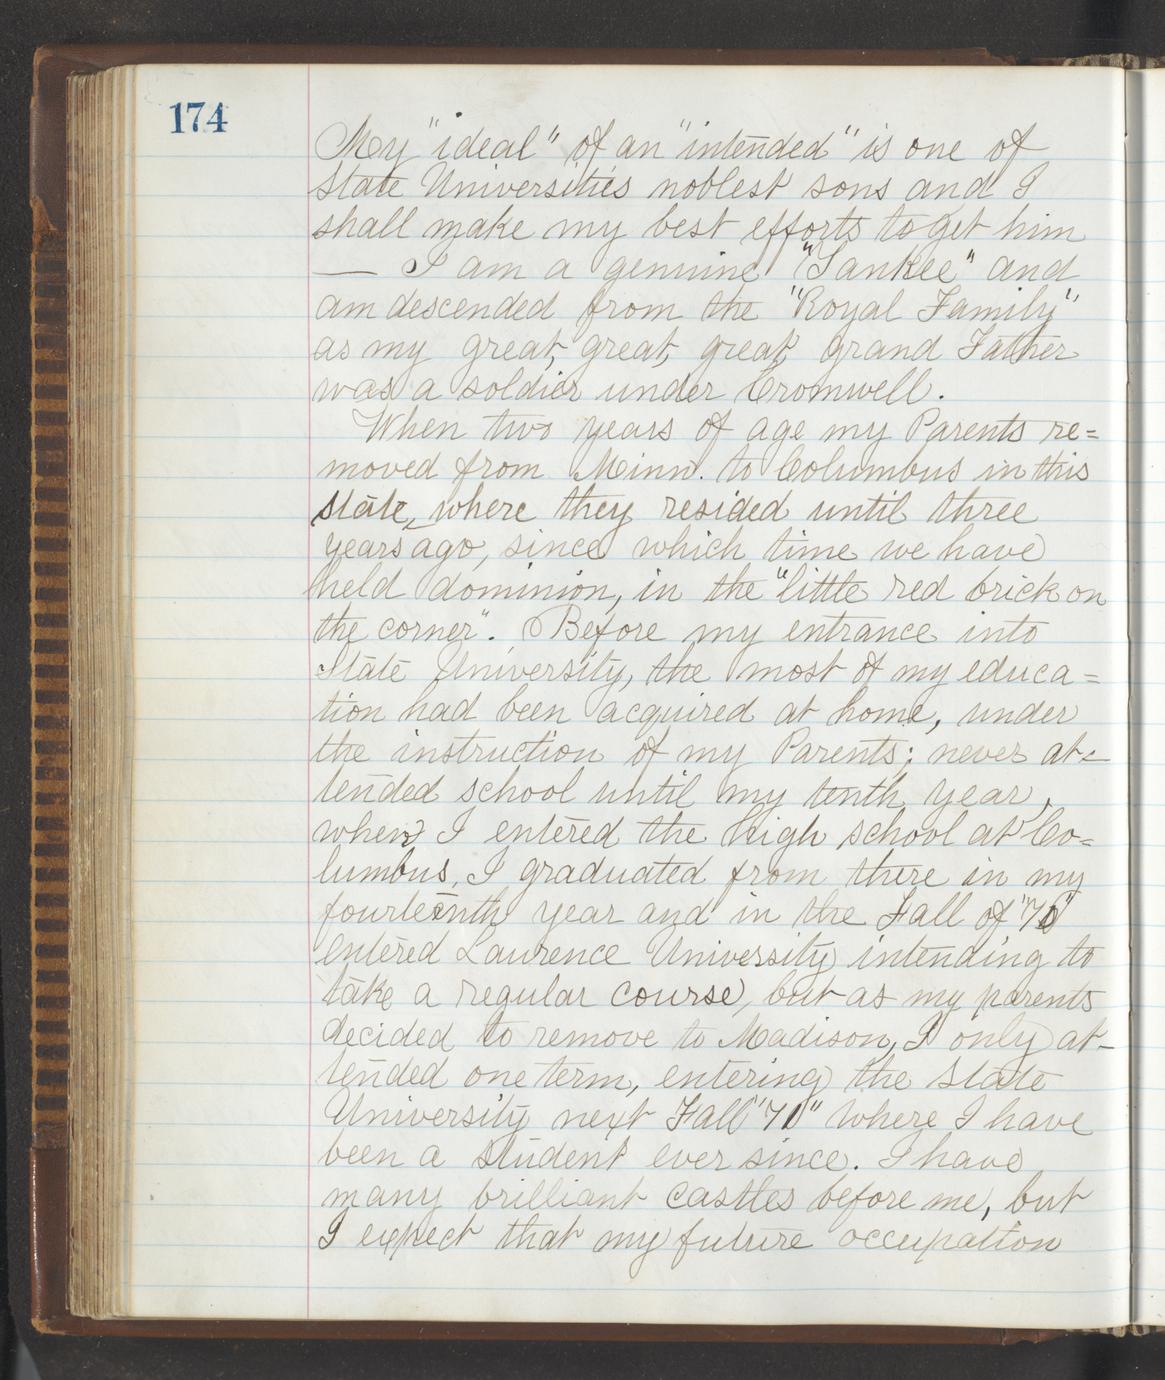 174
My "ideal" of an "intended" is one of
State Universities noblest sons and I
shall make my best efforts to get him
— I am a genuine "Yankee" and
am descended from the "Royal Family"
as my great, great, great, grand Father
was a soldier under Cromwell.
When two years of age my Parents re=
moved from Minn. to Columbus in this
state, where they resided until three
years ago, since which time we have
held dominion, in the "little red brick on
the corner". Before my entrance into
State University, the most of my educa=
tion had been acquired at home, under
the instruction of my Parents; never at=
tended school until my tenth year,
when I entered the high school at Co=
lumbus, I graduated from there in my
fourteenth year and in the Fall of "70"
entered Lawrence University intending to
take a regular course, but as my parents
decided to remove to Madison, I only at-
tended one term, entering the State
University next Fall "71" where I have
been a student ever since. I have
many brilliant castles before me, but
I expect that my future occupation